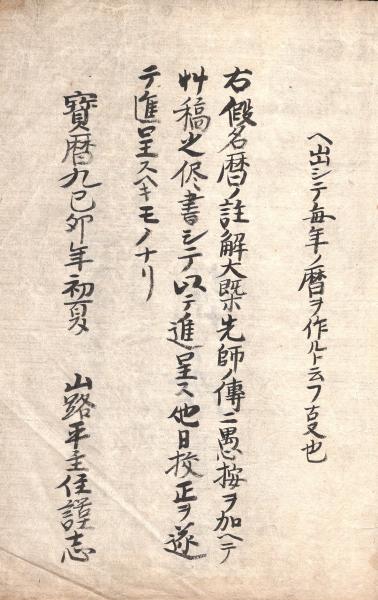 ヘ出シテ毎年ノ暦ヲ作ルト云フ古叓也
右假名暦ノ註解大槩先師ノ傳ニ愚按ヲ加ヘテ
艸稿之侭書シテ以テ進呈ス他日校正ヲ遂
テ進呈スヘキモノナリ
寳暦九己卯年初夏 山路平主住謹志